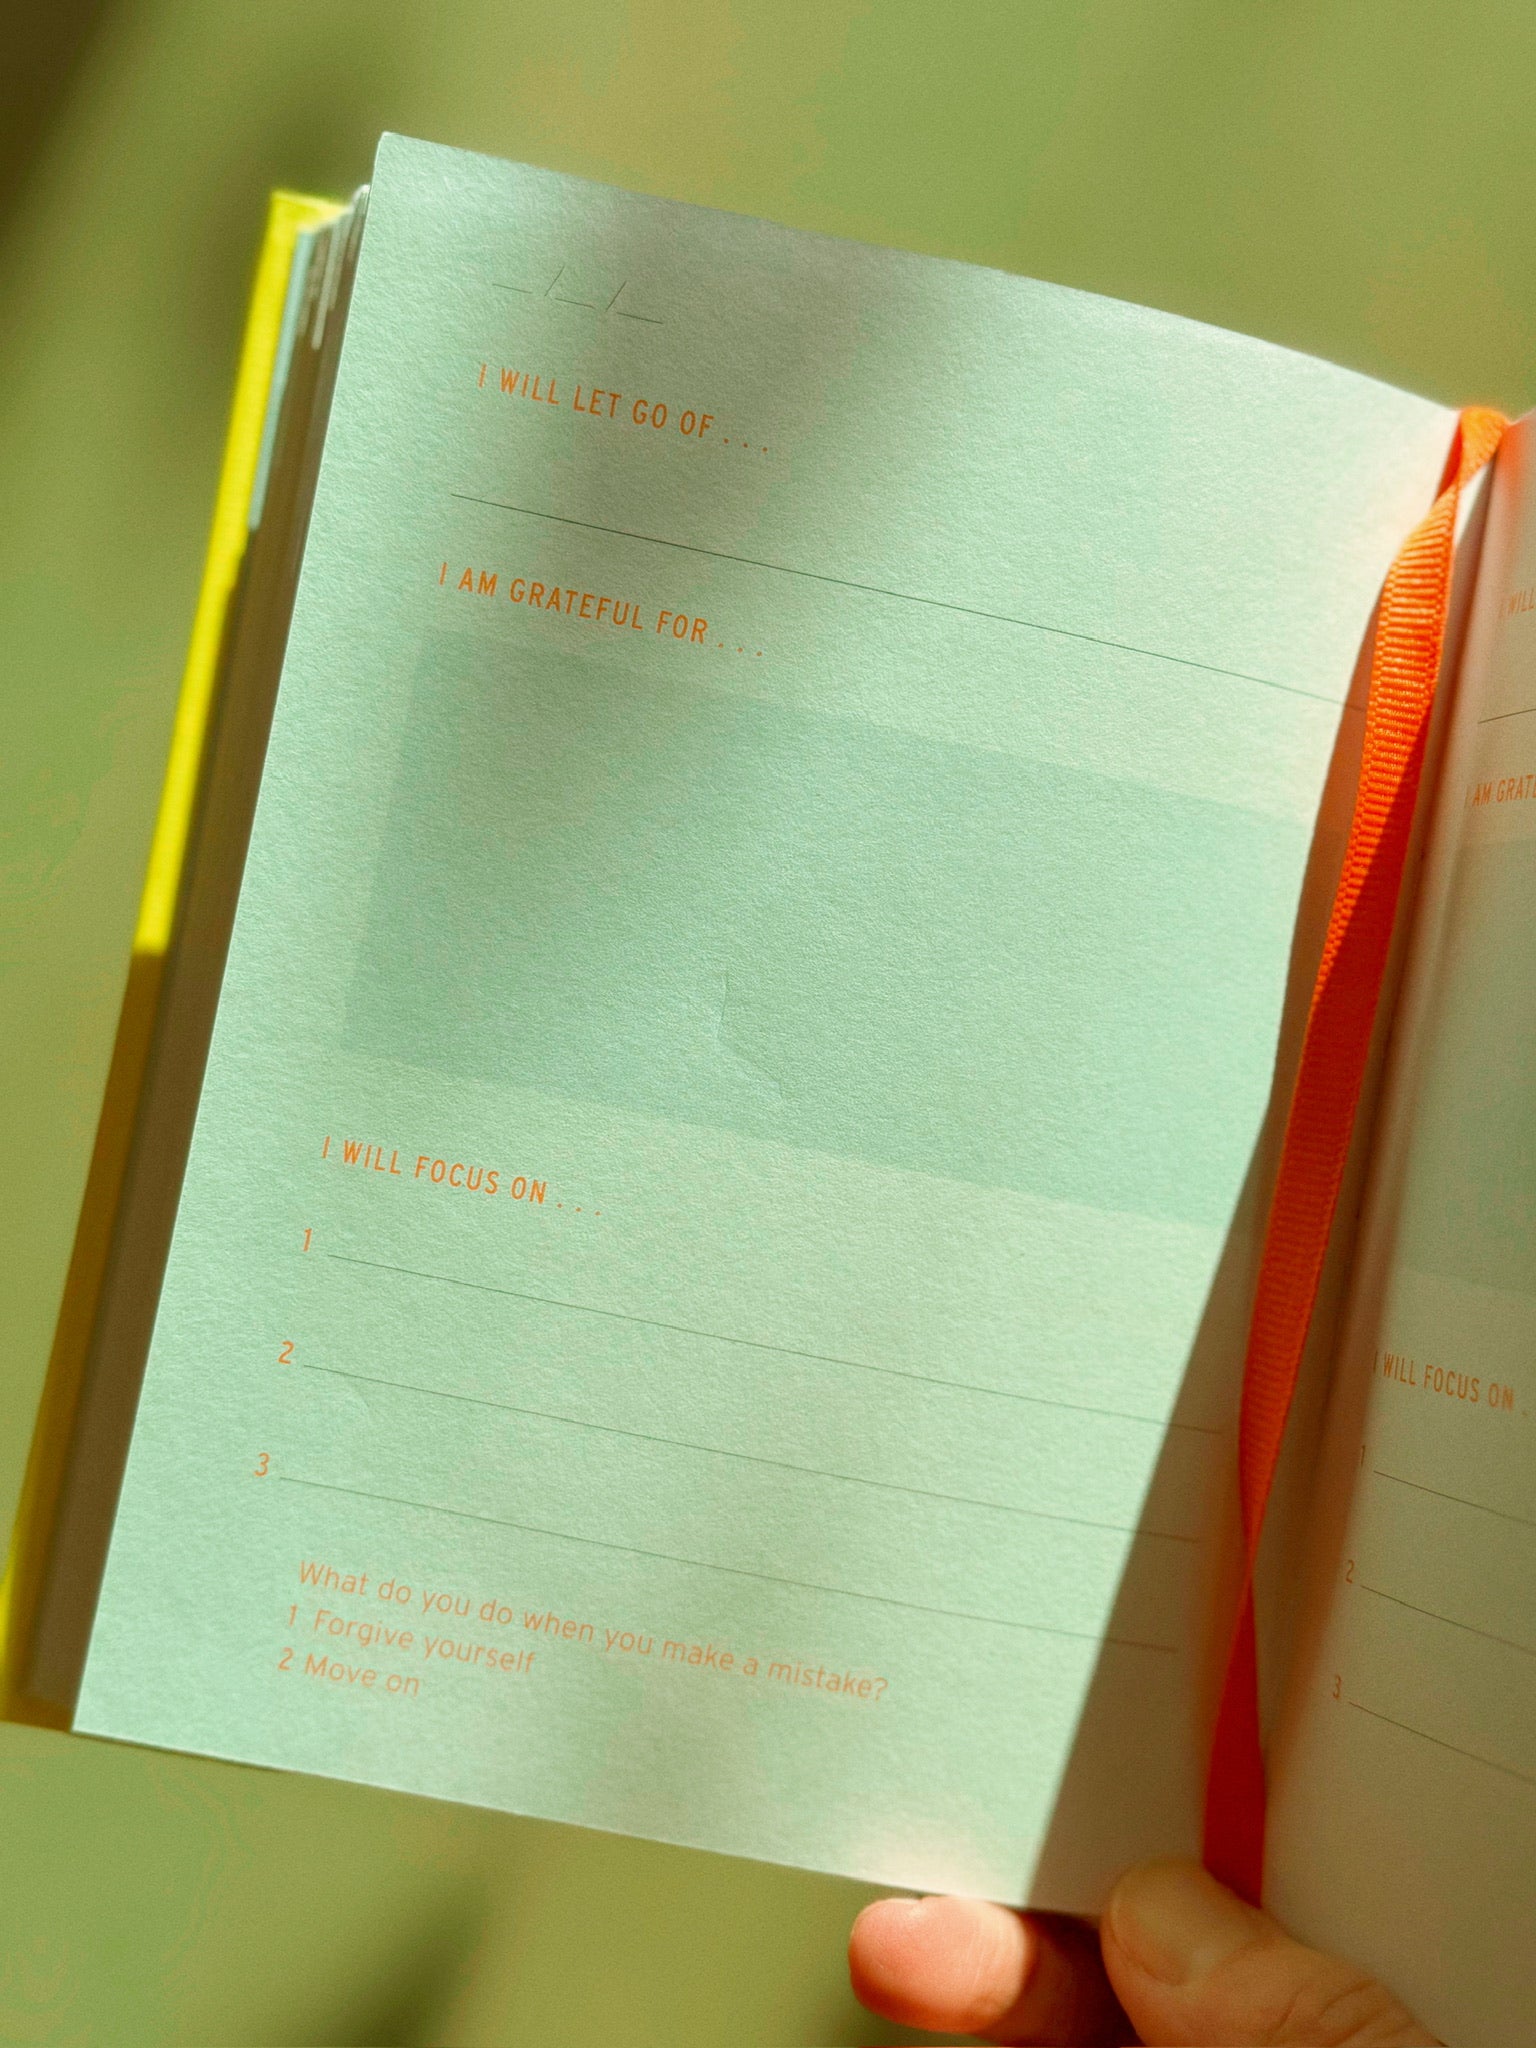 __/__/__
I WILL LET GO OF...
I AM GRATEFUL FOR...
I WILL FOCUS ON...
1
2
3
What do you do when you make a mistake?
1 Forgive yourself
2 Move on
I WILL
I AM GRAT
I WILL FOCUS ON
1
2
3